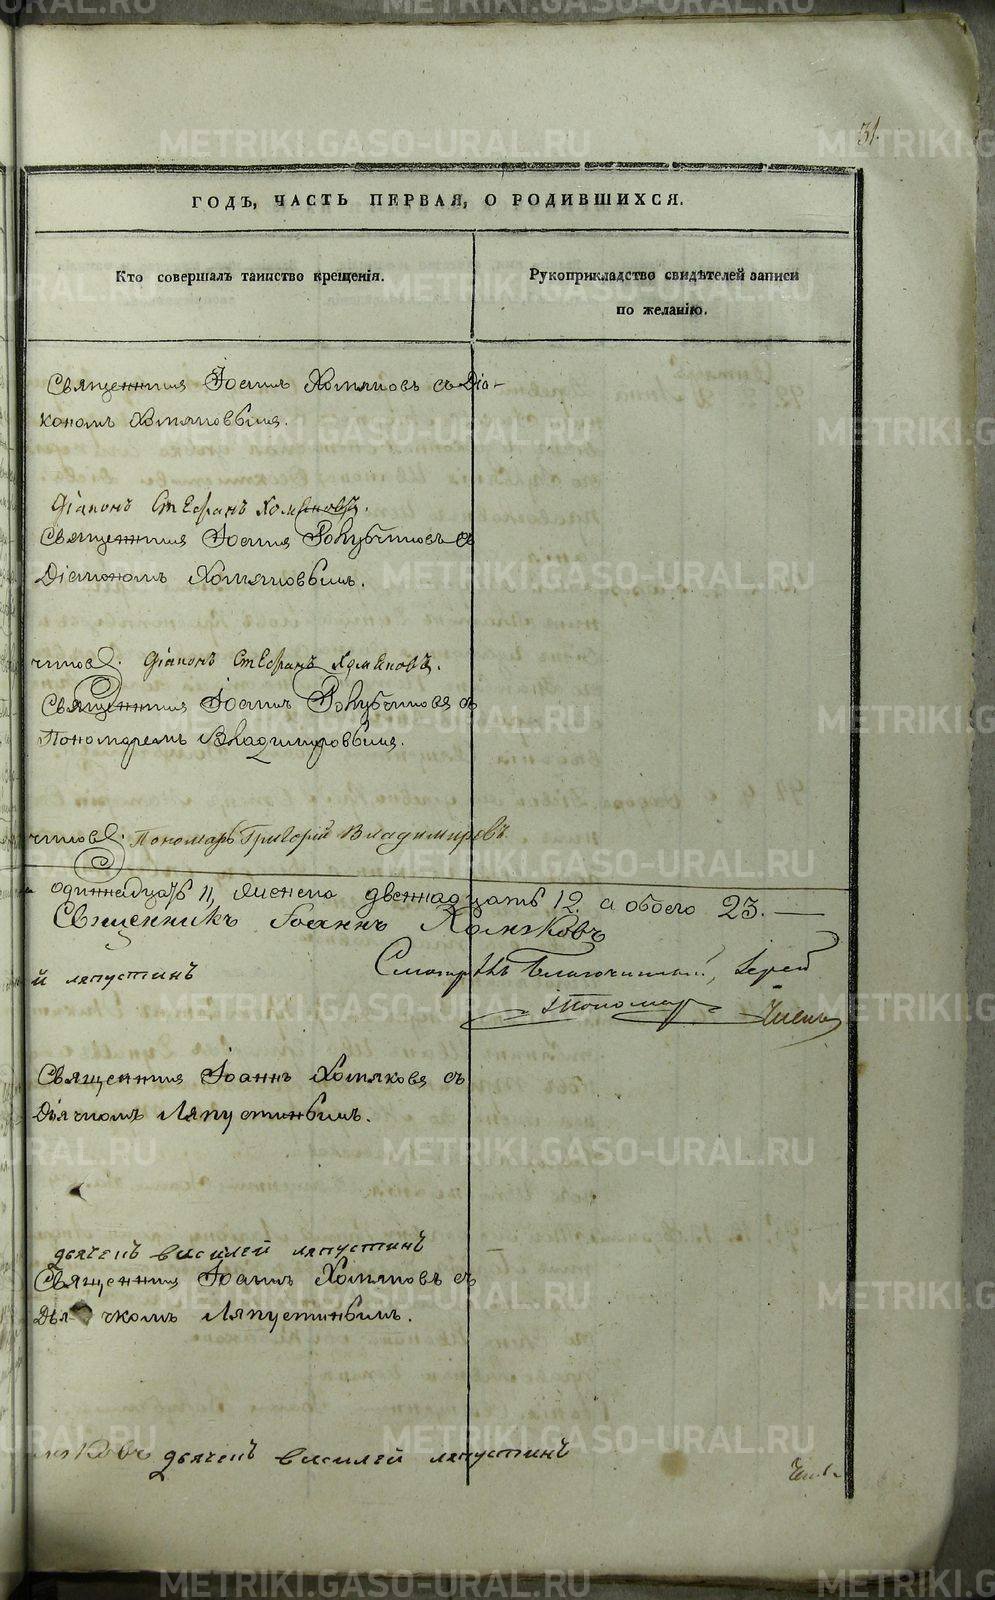 31.
ГОДЪ, ЧАСТЬ ПЕРВАЯ, О РОДИВШИХСЯ.
Кто совершалъ таинство крещенія.
Рукоприкладство свидѣтелей записи
по желанію.
Священникъ Іоаннъ Хомяковъ съ Діа-
кономъ Хомяковымъ.
Діаконъ Стефанъ Хомяковъ.
Священникъ Іоаннъ Голубчиковъ съ
Діакономъ Хомяковымъ.
чиковъ. Діаконъ Стефанъ Хомяковъ.
Священникъ Іоаннъ Голубчиковъ съ
Пономаремъ Владимировымъ.
чиковъ. Пономарь Григорій Владимировъ
одиннадцать 11, женска двенадцать 12. а обоего 23.
Священникъ Іоаннъ Хомяковъ
й ляпустинъ
Смотрѣлъ Благочинный, Іерей
Священникъ Іоаннъ Хомяковъ съ
Дьячкомъ Ляпустинымъ.
дьячекъ василей ляпустинъ
Священникъ Іоаннъ Хомяковъ съ
Дьячкомъ Ляпустинымъ.
мяковъ дьячекъ василей ляпустинъ
METRIKI.GASO-URAL.RU